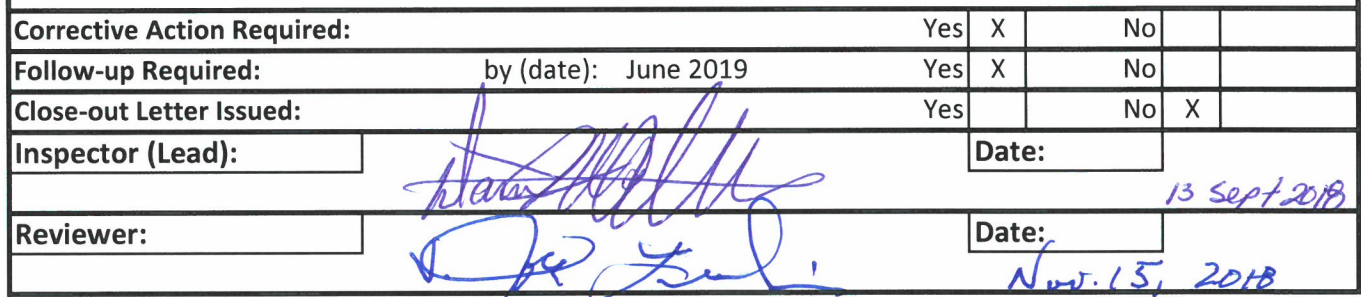 Corrective Action Required: Yes X No
Follow-up Required: by (date): June 2019 Yes X No
Close-out Letter Issued: Yes No X
Inspector (Lead): Date:
13 Sept 2018
Reviewer: Date:
Nov. 15, 2018